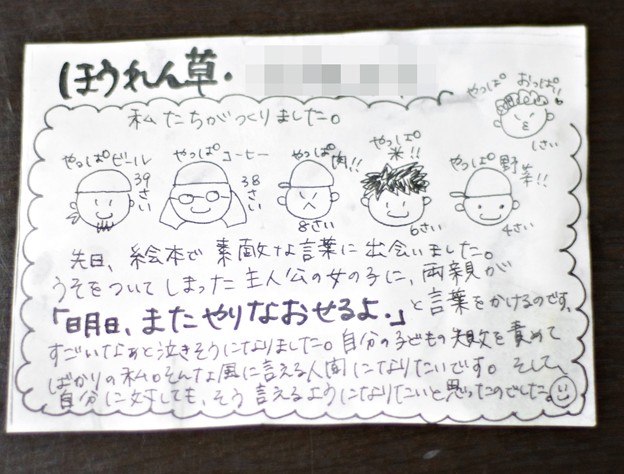 ほうれん草・
やっぱ おっぱい!
1さい
私たちがつくりました。
やっぱビール
39さい
やっぱコーヒー
38さい
やっぱ肉!!
8さい
やっぱ米!!
6さい
やっぱ野菜!!
4さい
先日、絵本で素敵な言葉に出会いました。
うそをついてしまった主人公の女の子に、両親が
「明日、またやりなおせるよ。」と言葉をかけるのです。
すごいなぁと泣きそうになりました。自分の子どもの失敗を責めて
ばかりの私。そんな風に言える人間になりたいです。そして、
自分に対しても、そう言えるようになりたいと思ったのでした。